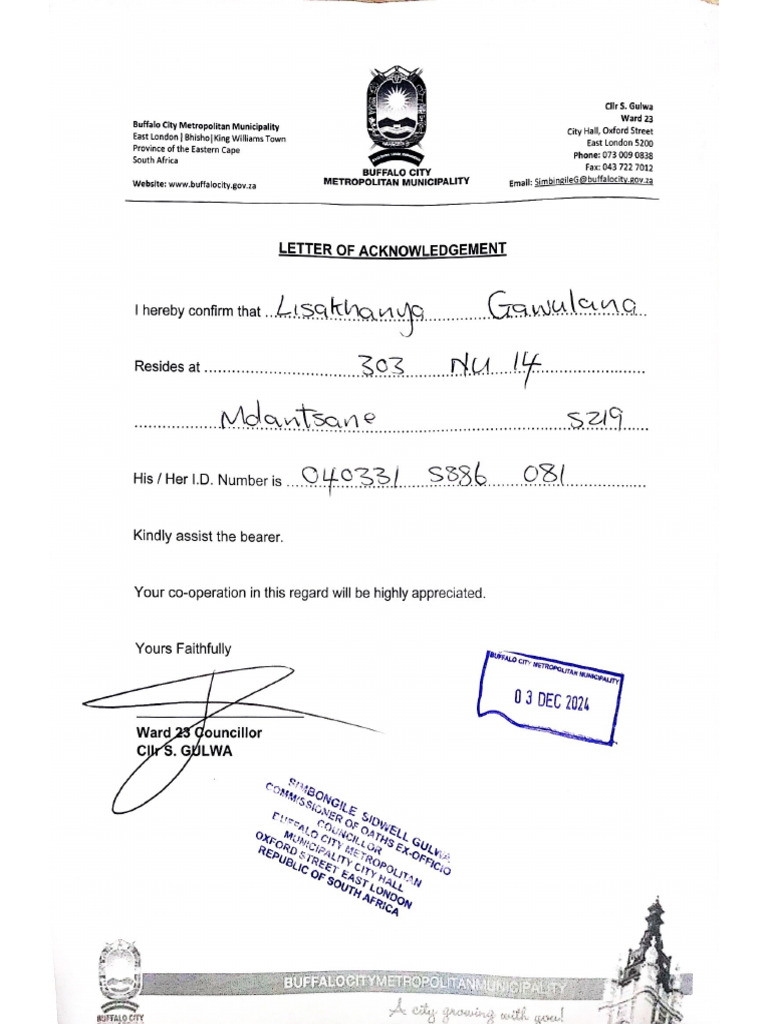 Buffalo City Metropolitan Municipality
East London | Bhisho|King Williams Town
Province of the Eastern Cape
South Africa
Website: www.buffalocity.gov.za
BUFFALO CITY
METROPOLITAN MUNICIPALITY
Cllr S. Gulwa
Ward 23
City Hall, Oxford Street
East London 5200
Phone: 073 009 0838
Fax: 043 722 7012
Email: SimbingileG@buffalocity.gov.za
LETTER OF ACKNOWLEDGEMENT
I hereby confirm that Lisakhanya Gawulana
Resides at 303 NU 14
Mdantsane 5219
His / Her I.D. Number is 040331 5886 081
Kindly assist the bearer.
Your co-operation in this regard will be highly appreciated.
Yours Faithfully
BUFFALO CITY METROPOLITAN MUNICIPALITY
03 DEC 2024
Ward 23 Councillor
Cllr S. GULWA
SIMBONGILE SIDWELL GULWA
COMMISSIONER OF OATHS EX-OFFICIO
COUNCILLOR
BUFFALO CITY METROPOLITAN
MUNICIPALITY CITY HALL
OXFORD STREET EAST LONDON
REPUBLIC OF SOUTH AFRICA
BUFFALOCITYMETROPOLITANMUNICIPALITY
BUFFALO CITY
A city growing with you!